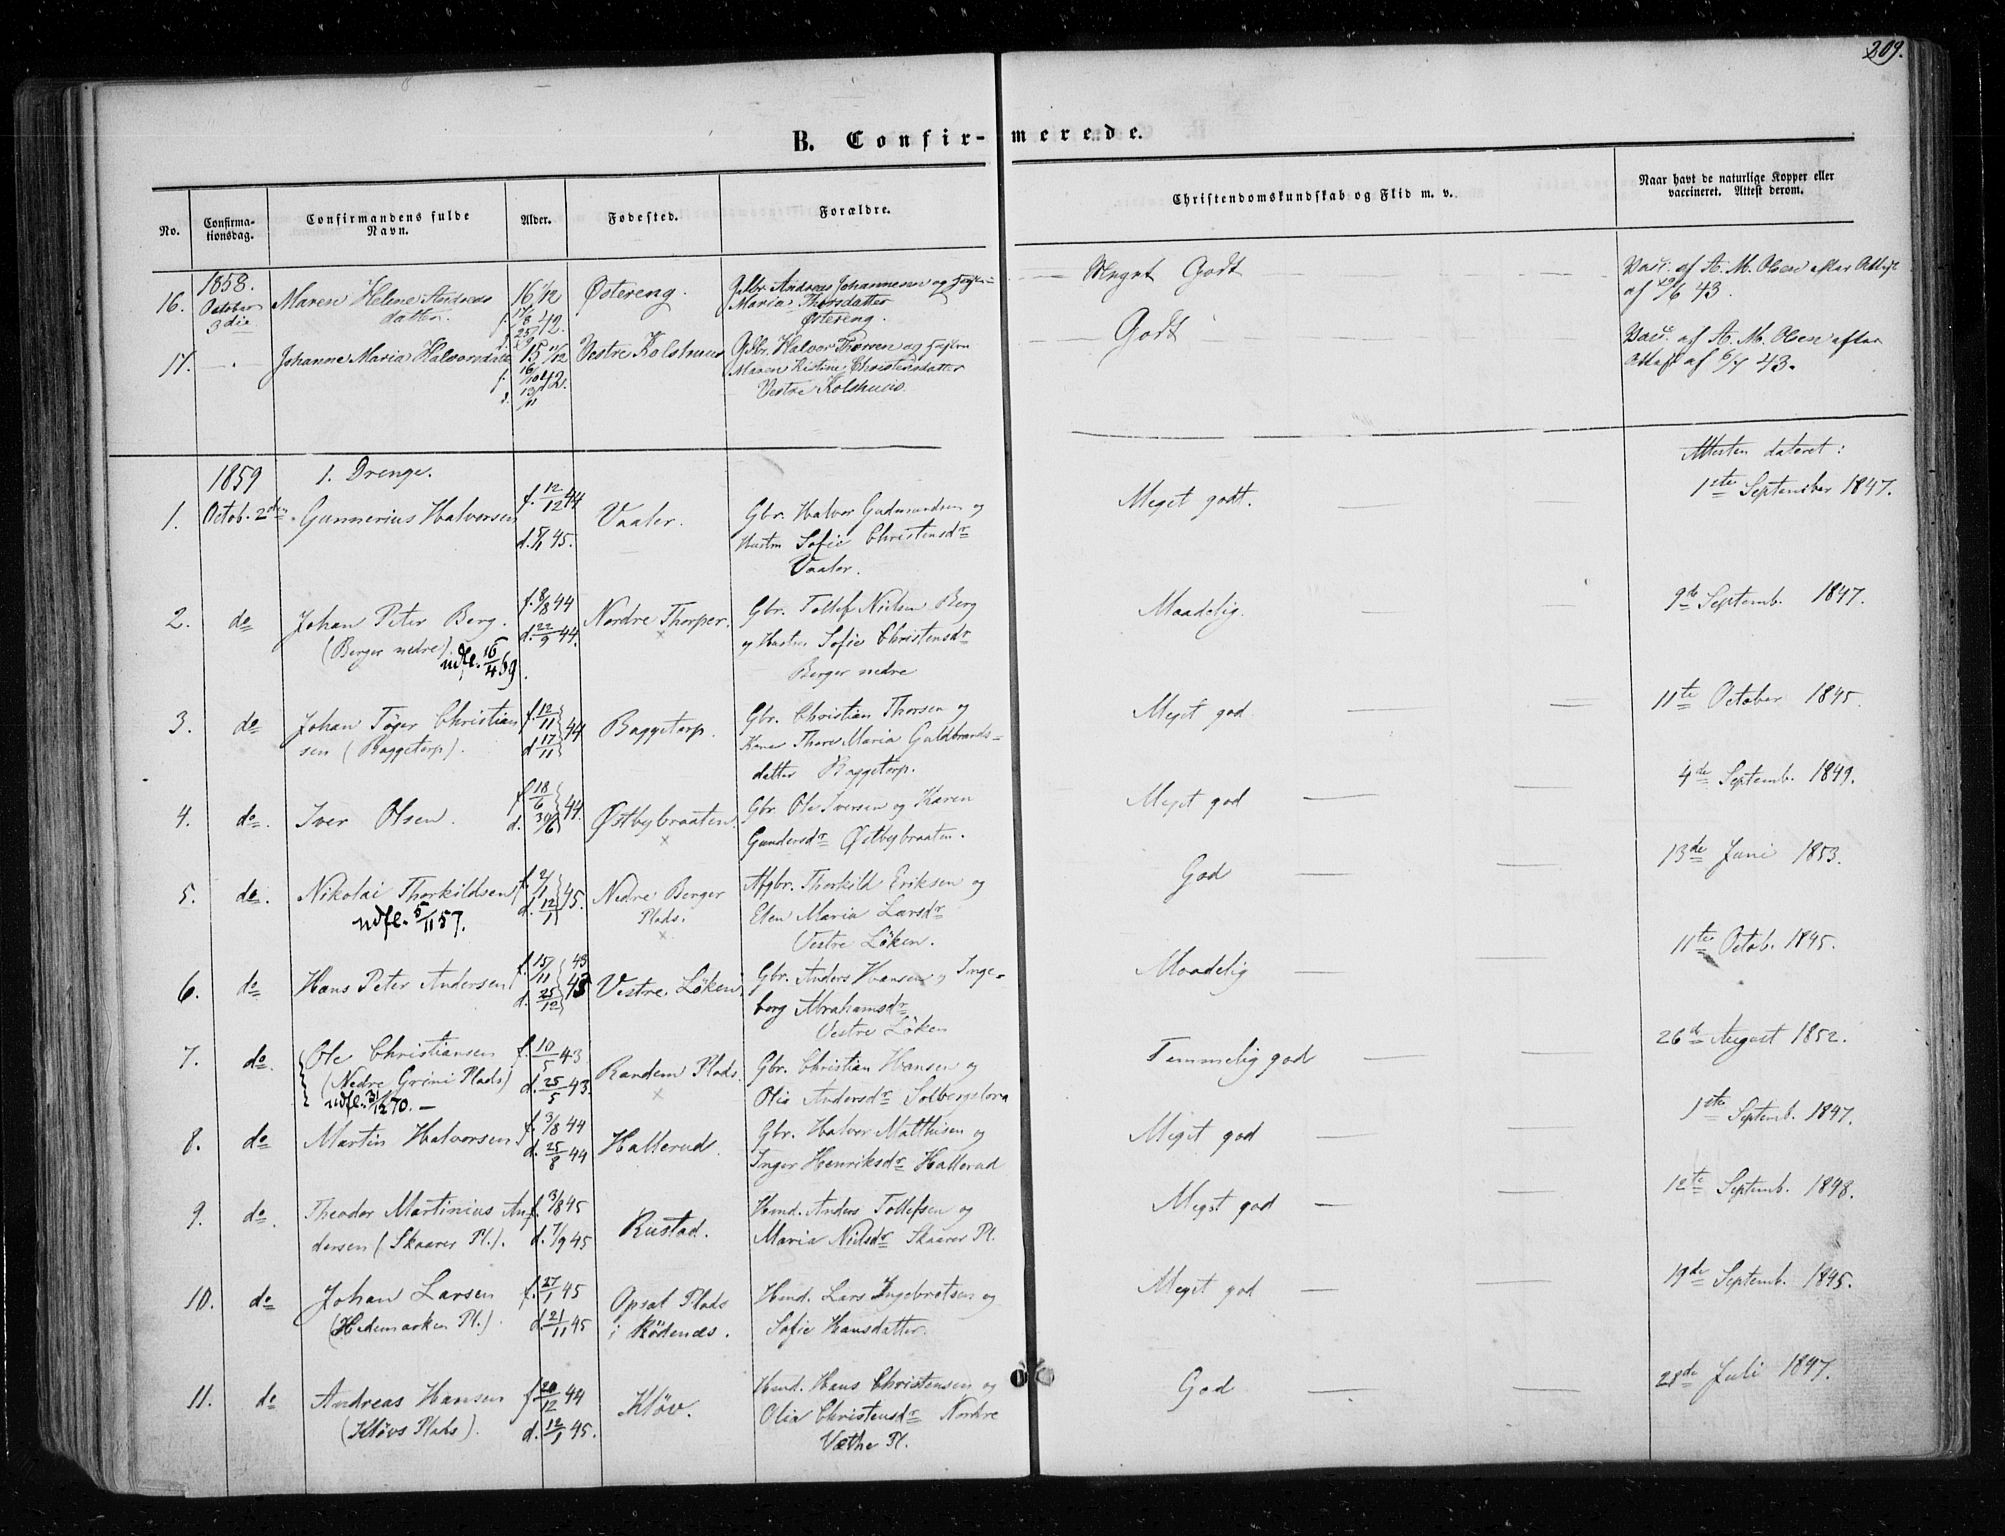 209.
B. Confirmerede.
No. Confirmationsdag. Confirmandens fulde Navn. Alder. Fødested. Forældre. Christendomskundskab og Flid m. v. Naar havt de naturlige Kopper eller vaccineret. Attest derom.
1858.
16. October 3die Maren Helene Andreas datter. 16 1/12 Østereng. Gbr. Andreas Johannesen og Maria Thorsdatter Østereng. Meget Godt Vacc. af A. M. Olsen efter Attest af 29/6 43.
17. Johanne Maria Halvorsdatter 15 11/12 Vestre Kolshuus Gbr. Halvor Maren Kistine Christensdatter Vestre Kolshuus. Godt Vacc. af A. M. Olsen efter Attest af 6/7 43.
1859 1. Drenge. Attesten dateret:
1. Octob. 2den. Gunnerius Halvorsen f. 12/12 44 Vaaler. Gbr. Halvor Gudmundsen og Hustru Sofie Christensdr Vaaler. Meget godt. 1ste September 1847.
2. do Johan Peter Berg. (Berger nedre). udfl. 16/4 69. f. 8/8 44 d. 22/9 44. Nordre Thorper. Gbr. Tollef Nielsen Berg og Hustru Sofie Christensdr Berger nedre Maadelig. 9de Septemb. 1847.
3. do Johan Tøger Christiansen (Baggetorp). f. 12/11 d. 17/11 44 Baggetorp. Gbr. Christian Thorsen og Kone Thore Maria Guldbrandsdatter Baggetorp. Meget god 11te October 1845.
4. do. Iver Olsen. f. 18/6 d. 30/6 44. Østbybraaten. Gbr. Ole Iversen og Karen Gundersdr Østbybraaten. Meget god 4de Septemb. 1849.
5. do. Nikolai Thorkildsen udfl. 5/11 57. f. 2/1 d. 12/1 45. Nedre Berger Plads. Afgbr. Thorkild Eriksen og Elen Maria Larsdr Vestre Löken. God 13de Juni 1853.
6. do Hans Peter Andersen f. 15/11 43 d. 25/12 Vestre Löken Gbr. Anders Hansen og Ingeborg Abrahamsdr Vestre Löken Maadelig 11te Octob. 1845.
7. do. Ole Christiansen (Nedre Grini Plads) f. 10/5 43 d. 25/5 43. Randem Plads. Gbr. Christian Hansen og Olia Andersdr Temmelig god 26de August 1852.
8. do Martin Halvorsen f. 3/8 44 d. 25/8 44 Hallerud. Gbr. Halvor Matthisen og Inger Henriksdr Hallerud Meget god 1ste Septemb. 1847.
9. do. Theodor Martinius Andersen (Skaarer Pl.). f. 3/8 45 d. 7/9 45 Rustad. Hmd. Anders Tollefsen og Maria Nielsdr Skaarer Pl. Meget god 12te Septemb. 1848.
10. do Johan Larsen (Hedemarken Pl.). f. 27/1 45 Opsal Plads i Rödenæs. Hmd. Lars Ingebretsen og Sofie Hansdatter. Meget god 19de Septemb. 1845.
11. do Andreas Hansen (Kløvs Plads). f. 20/12 44 d. 12/1 45. Kløv. Hmd. Hans Christensen og Olia Christensdr Nordre Væthe Pl. God 28de Juli 1847.